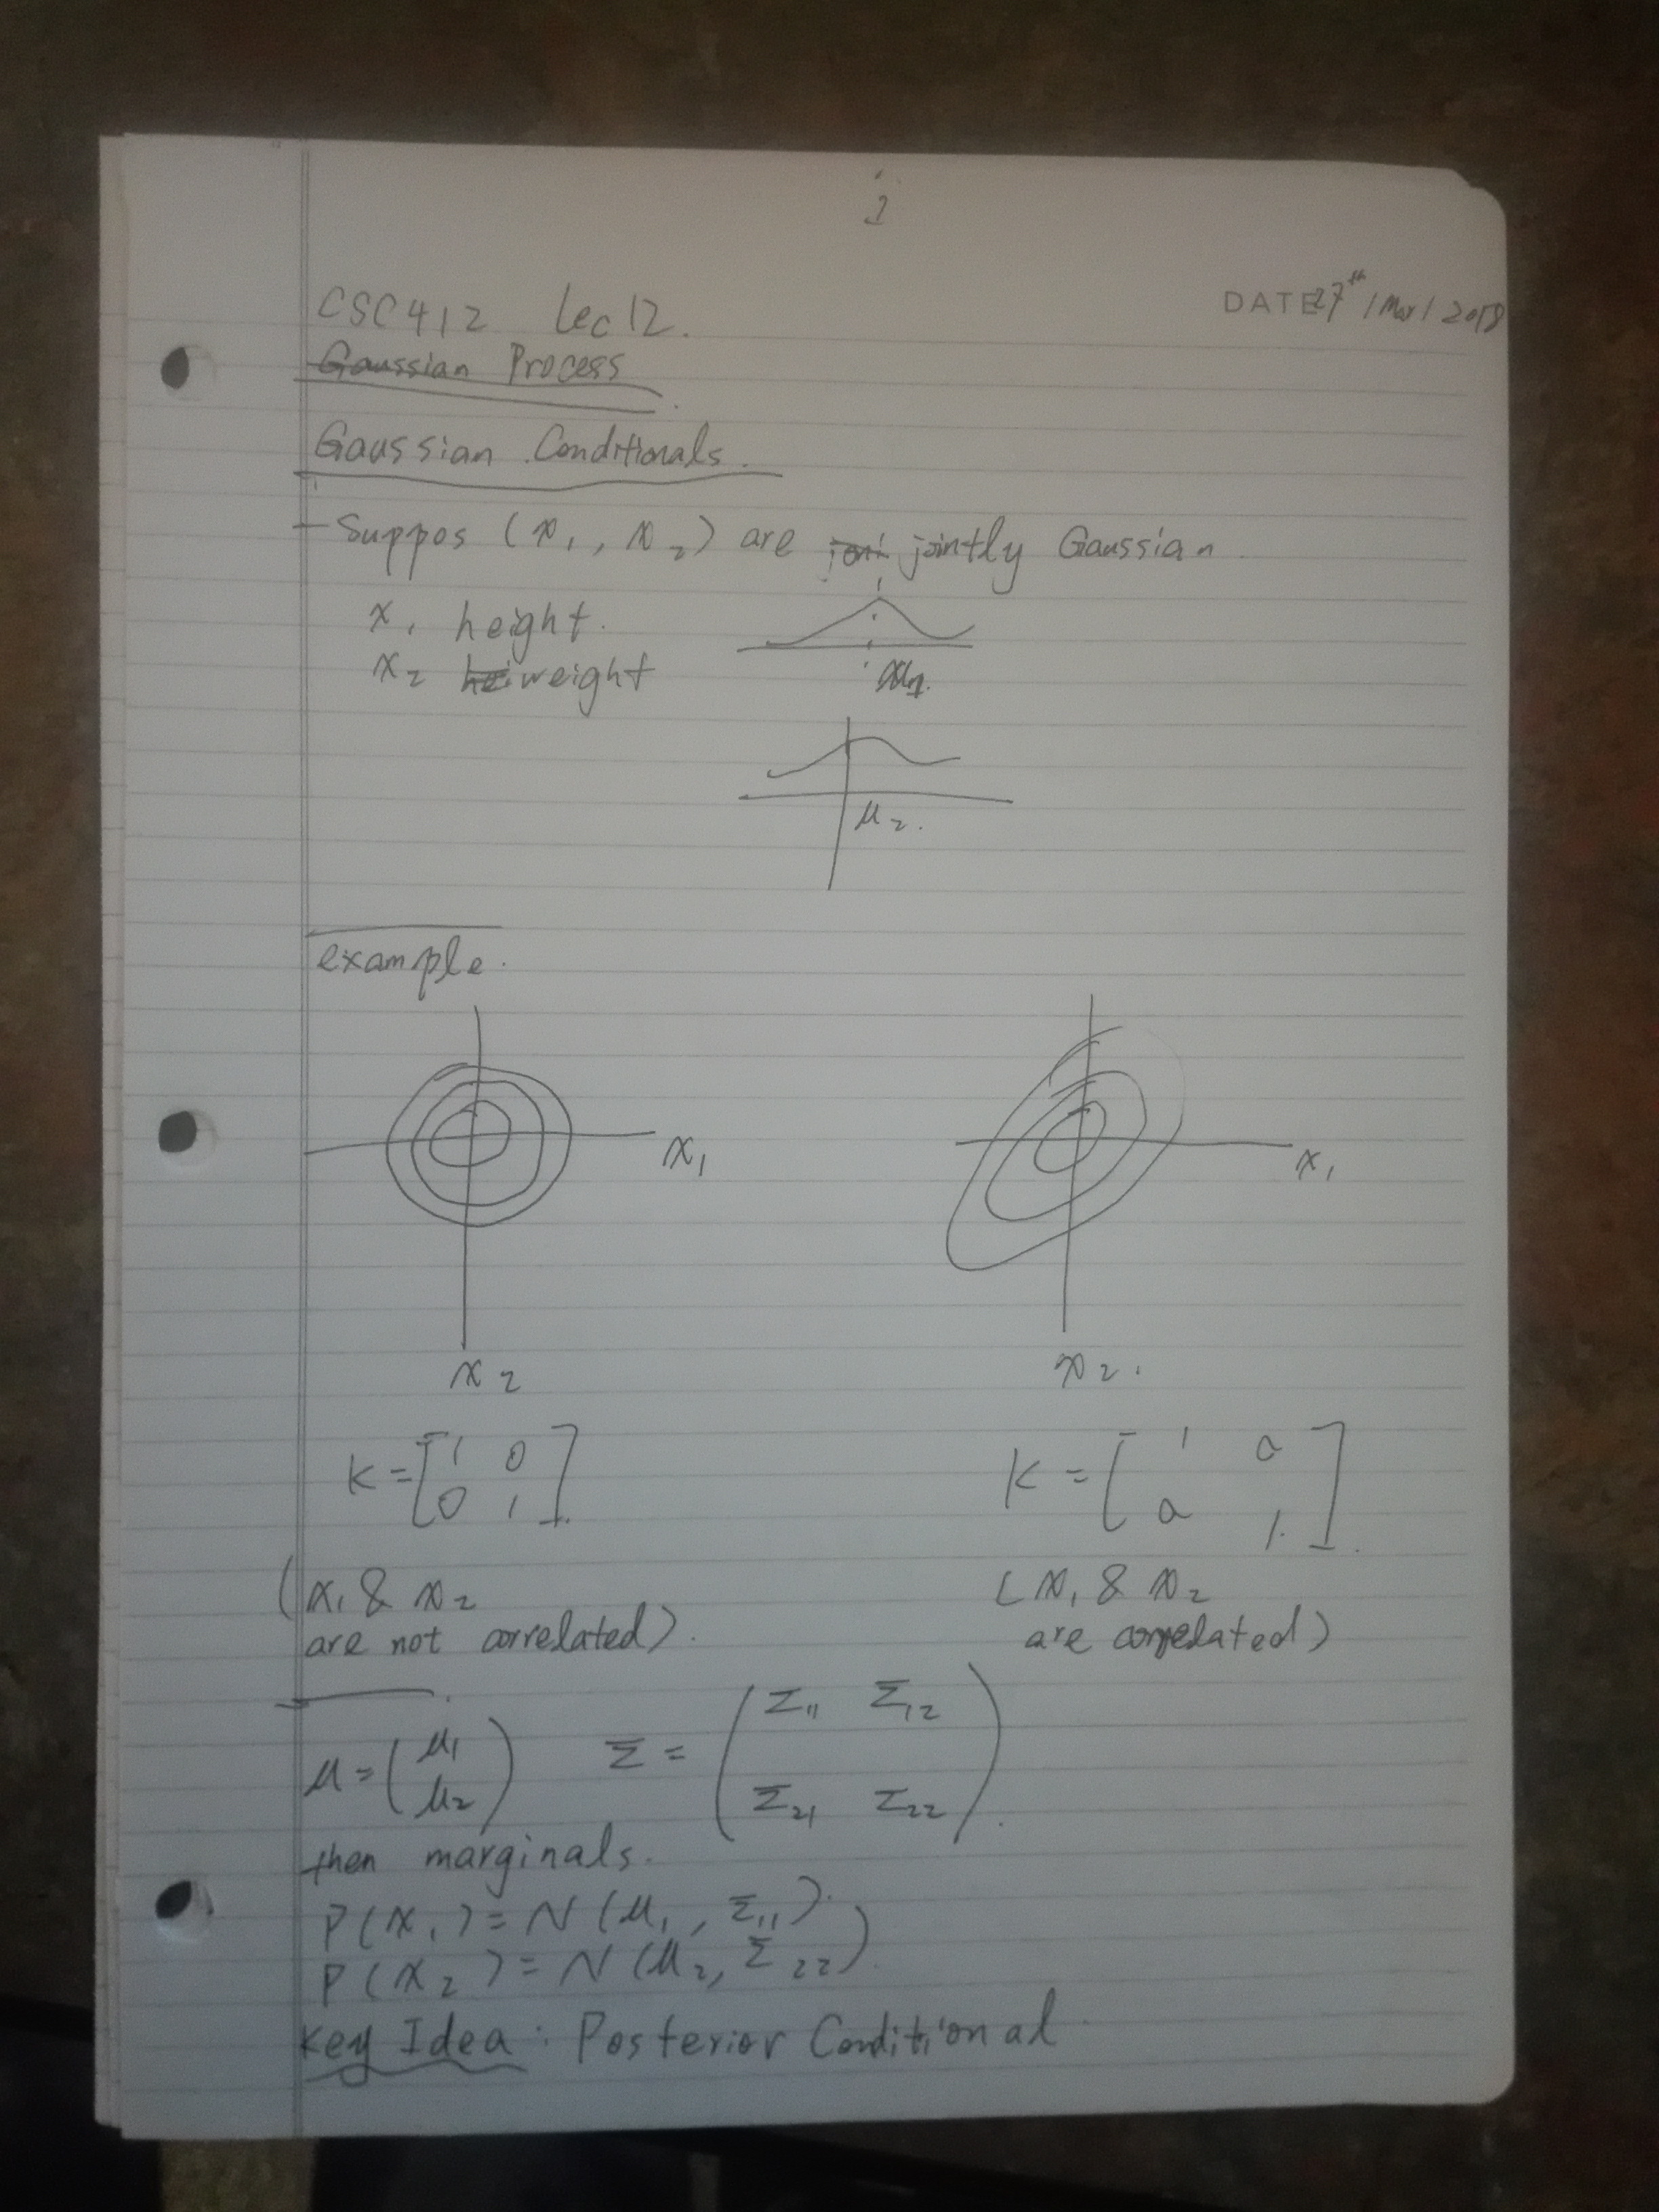 1
CSC412 Lec 12.
DATE 27th / Mar / 2018
Gaussian Process
Gaussian Conditionals.
- Suppos (x₁, x₂) are joni jointly Gaussian.
x₁ height.
x₂ hei weight
μ₂.
example.
x₁
x₁
x₂
x₂.
K = [1 0
0 1].
K = [1 a
a 1].
(x₁ & x₂
are not correlated).
(x₁ & x₂
are correlated)
μ = (μ₁
μ₂)
Σ = (Σ₁₁ Σ₁₂
Σ₂₁ Σ₂₂).
then marginals.
P(x₁) = N(μ₁, Σ₁₁).
P(x₂) = N(μ₂, Σ₂₂).
Key Idea : Posterior Conditional